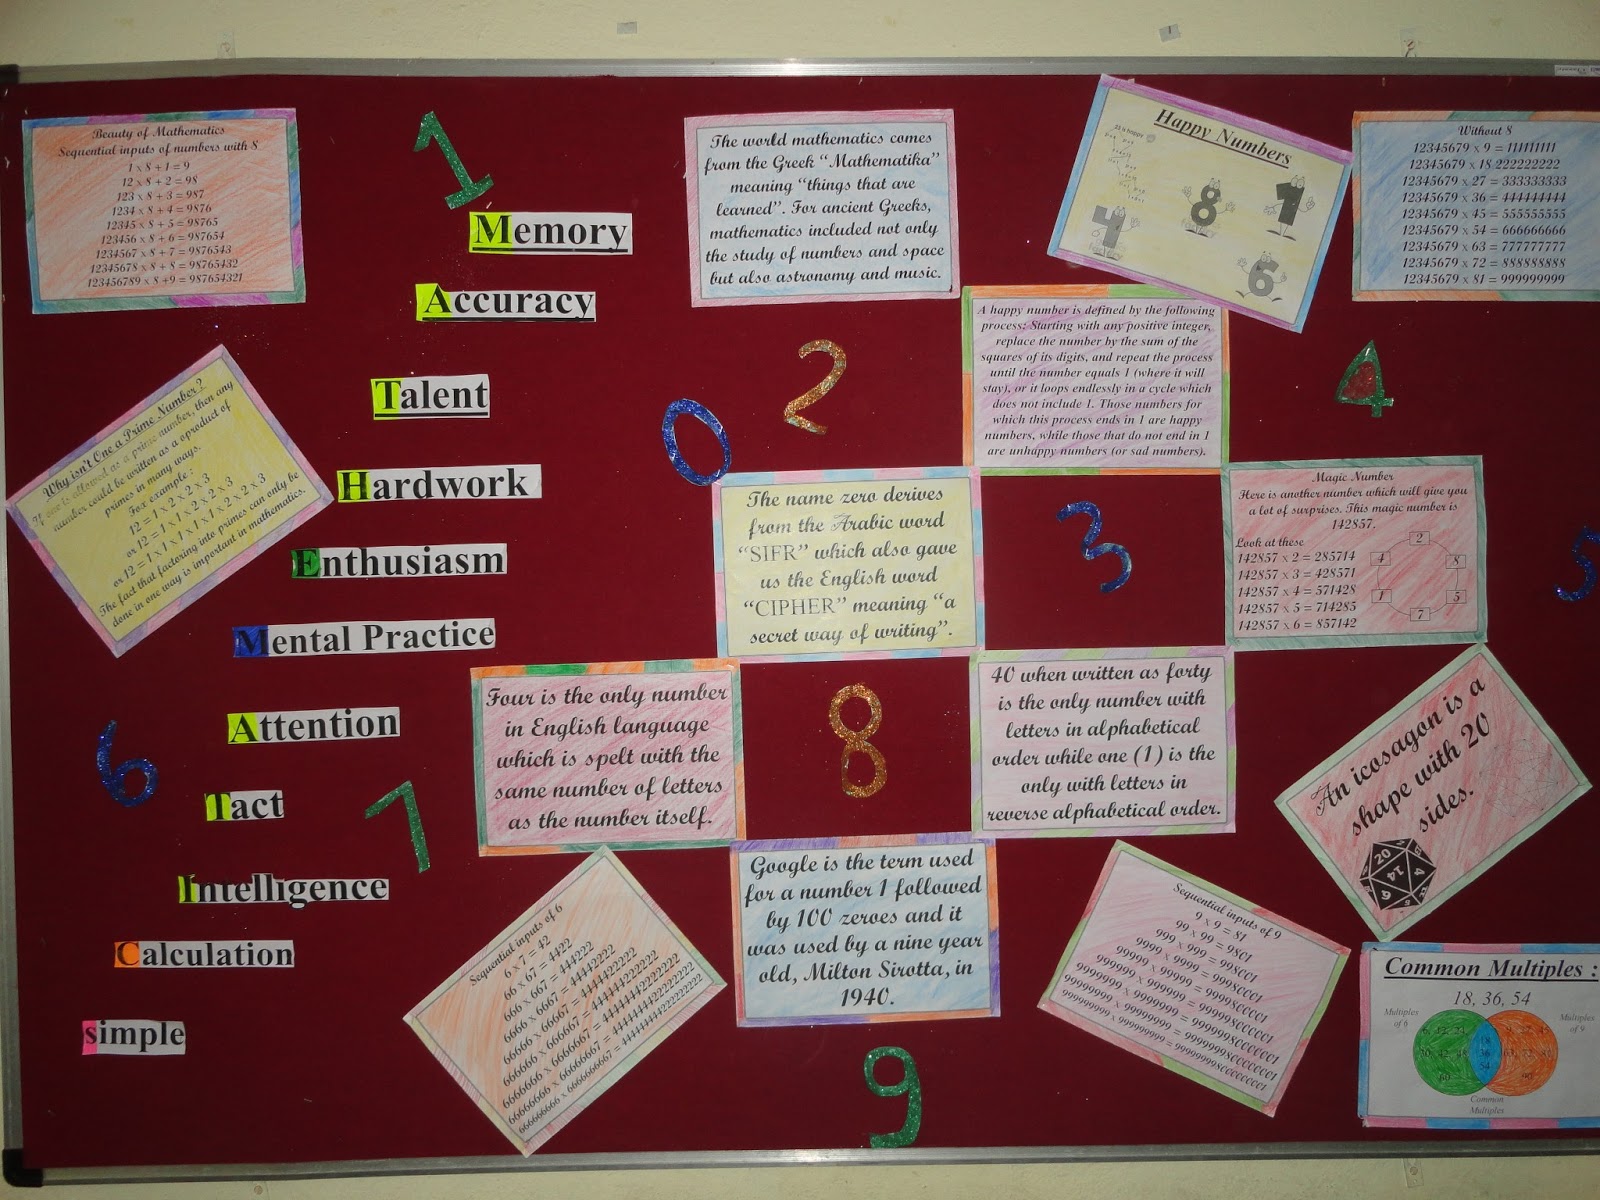 Beauty of Mathematics
Sequential inputs of numbers with 8
1 x 8 + 1 = 9
12 x 8 + 2 = 98
123 x 8 + 3 = 987
1234 x 8 + 4 = 9876
12345 x 8 + 5 = 98765
123456 x 8 + 6 = 987654
1234567 x 8 + 7 = 9876543
12345678 x 8 + 8 = 98765432
123456789 x 8 +9 = 987654321
1
Memory
Accuracy
Talent
Hardwork
Enthusiasm
Mental Practice
Attention
Tact
Intelligence
Calculation
simple
The world mathematics comes
from the Greek “Mathematika”
meaning “things that are
learned”. For ancient Greeks,
mathematics included not only
the study of numbers and space
but also astronomy and music.
Happy Numbers
8
1
4
6
Without 8
12345679 x 9 = 111111111
12345679 x 18 222222222
12345679 x 27 = 333333333
12345679 x 36 = 444444444
12345679 x 45 = 555555555
12345679 x 54 = 666666666
12345679 x 63 = 777777777
12345679 x 72 = 888888888
12345679 x 81 = 999999999
A happy number is defined by the following
process: Starting with any positive integer,
replace the number by the sum of the
squares of its digits, and repeat the process
until the number equals 1 (where it will
stay), or it loops endlessly in a cycle which
does not include 1. Those numbers for
which this process ends in 1 are happy
numbers, while those that do not end in 1
are unhappy numbers (or sad numbers).
2
0
4
Why isn't One a Prime Number?
If one is allowed as a prime number, then any
number could be written as a oproduct of
primes in many ways.
For example:
12 = 1 x 2 x 2 x 3
or 12 = 1 x 1 x 2 x 2 x 3
or 12 = 1 x 1 x 1 x 1 x 2 x 2 x 3
The fact that factoring into primes can only be
done in one way is important in mathematics.
The name zero derives
from the Arabic word
“SIFR” which also gave
us the English word
“CIPHER” meaning “a
secret way of writing”.
3
Magic Number
Here is another number which will give you
a lot of surprises. This magic number is
142857.
Look at these
142857 x 2 = 285714
142857 x 3 = 428571
142857 x 4 = 571428
142857 x 5 = 714285
142857 x 6 = 857142
2
8
5
7
1
4
5
6
7
Four is the only number
in English language
which is spelt with the
same number of letters
as the number itself.
8
40 when written as forty
is the only number with
letters in alphabetical
order while one (1) is the
only with letters in
reverse alphabetical order.
An icosagon is a
shape with 20
sides.
20
14
6
Google is the term used
for a number 1 followed
by 100 zeroes and it
was used by a nine year
old, Milton Sirotta, in
1940.
Sequential inputs of 6
6 x 7 = 42
66 x 67 = 4422
666 x 667 = 444222
6666 x 6667 = 44442222
66666 x 66667 = 4444422222
666666 x 666667 = 444444222222
6666666 x 6666667 = 44444442222222
66666666 x 66666667 = 4444444422222222
666666666 x 666666667 = 444444444222222222
Sequential inputs of 9
9 x 9 = 81
99 x 99 = 9801
999 x 999 = 998001
9999 x 9999 = 99980001
99999 x 99999 = 9999800001
999999 x 999999 = 999998000001
9999999 x 9999999 = 99999980000001
99999999 x 99999999 = 9999999800000001
999999999 x 999999999 = 999999998000000001
9
Common Multiples :
18, 36, 54
Multiples
of 6
Multiples
of 9
18
36
54
Common
Multiples